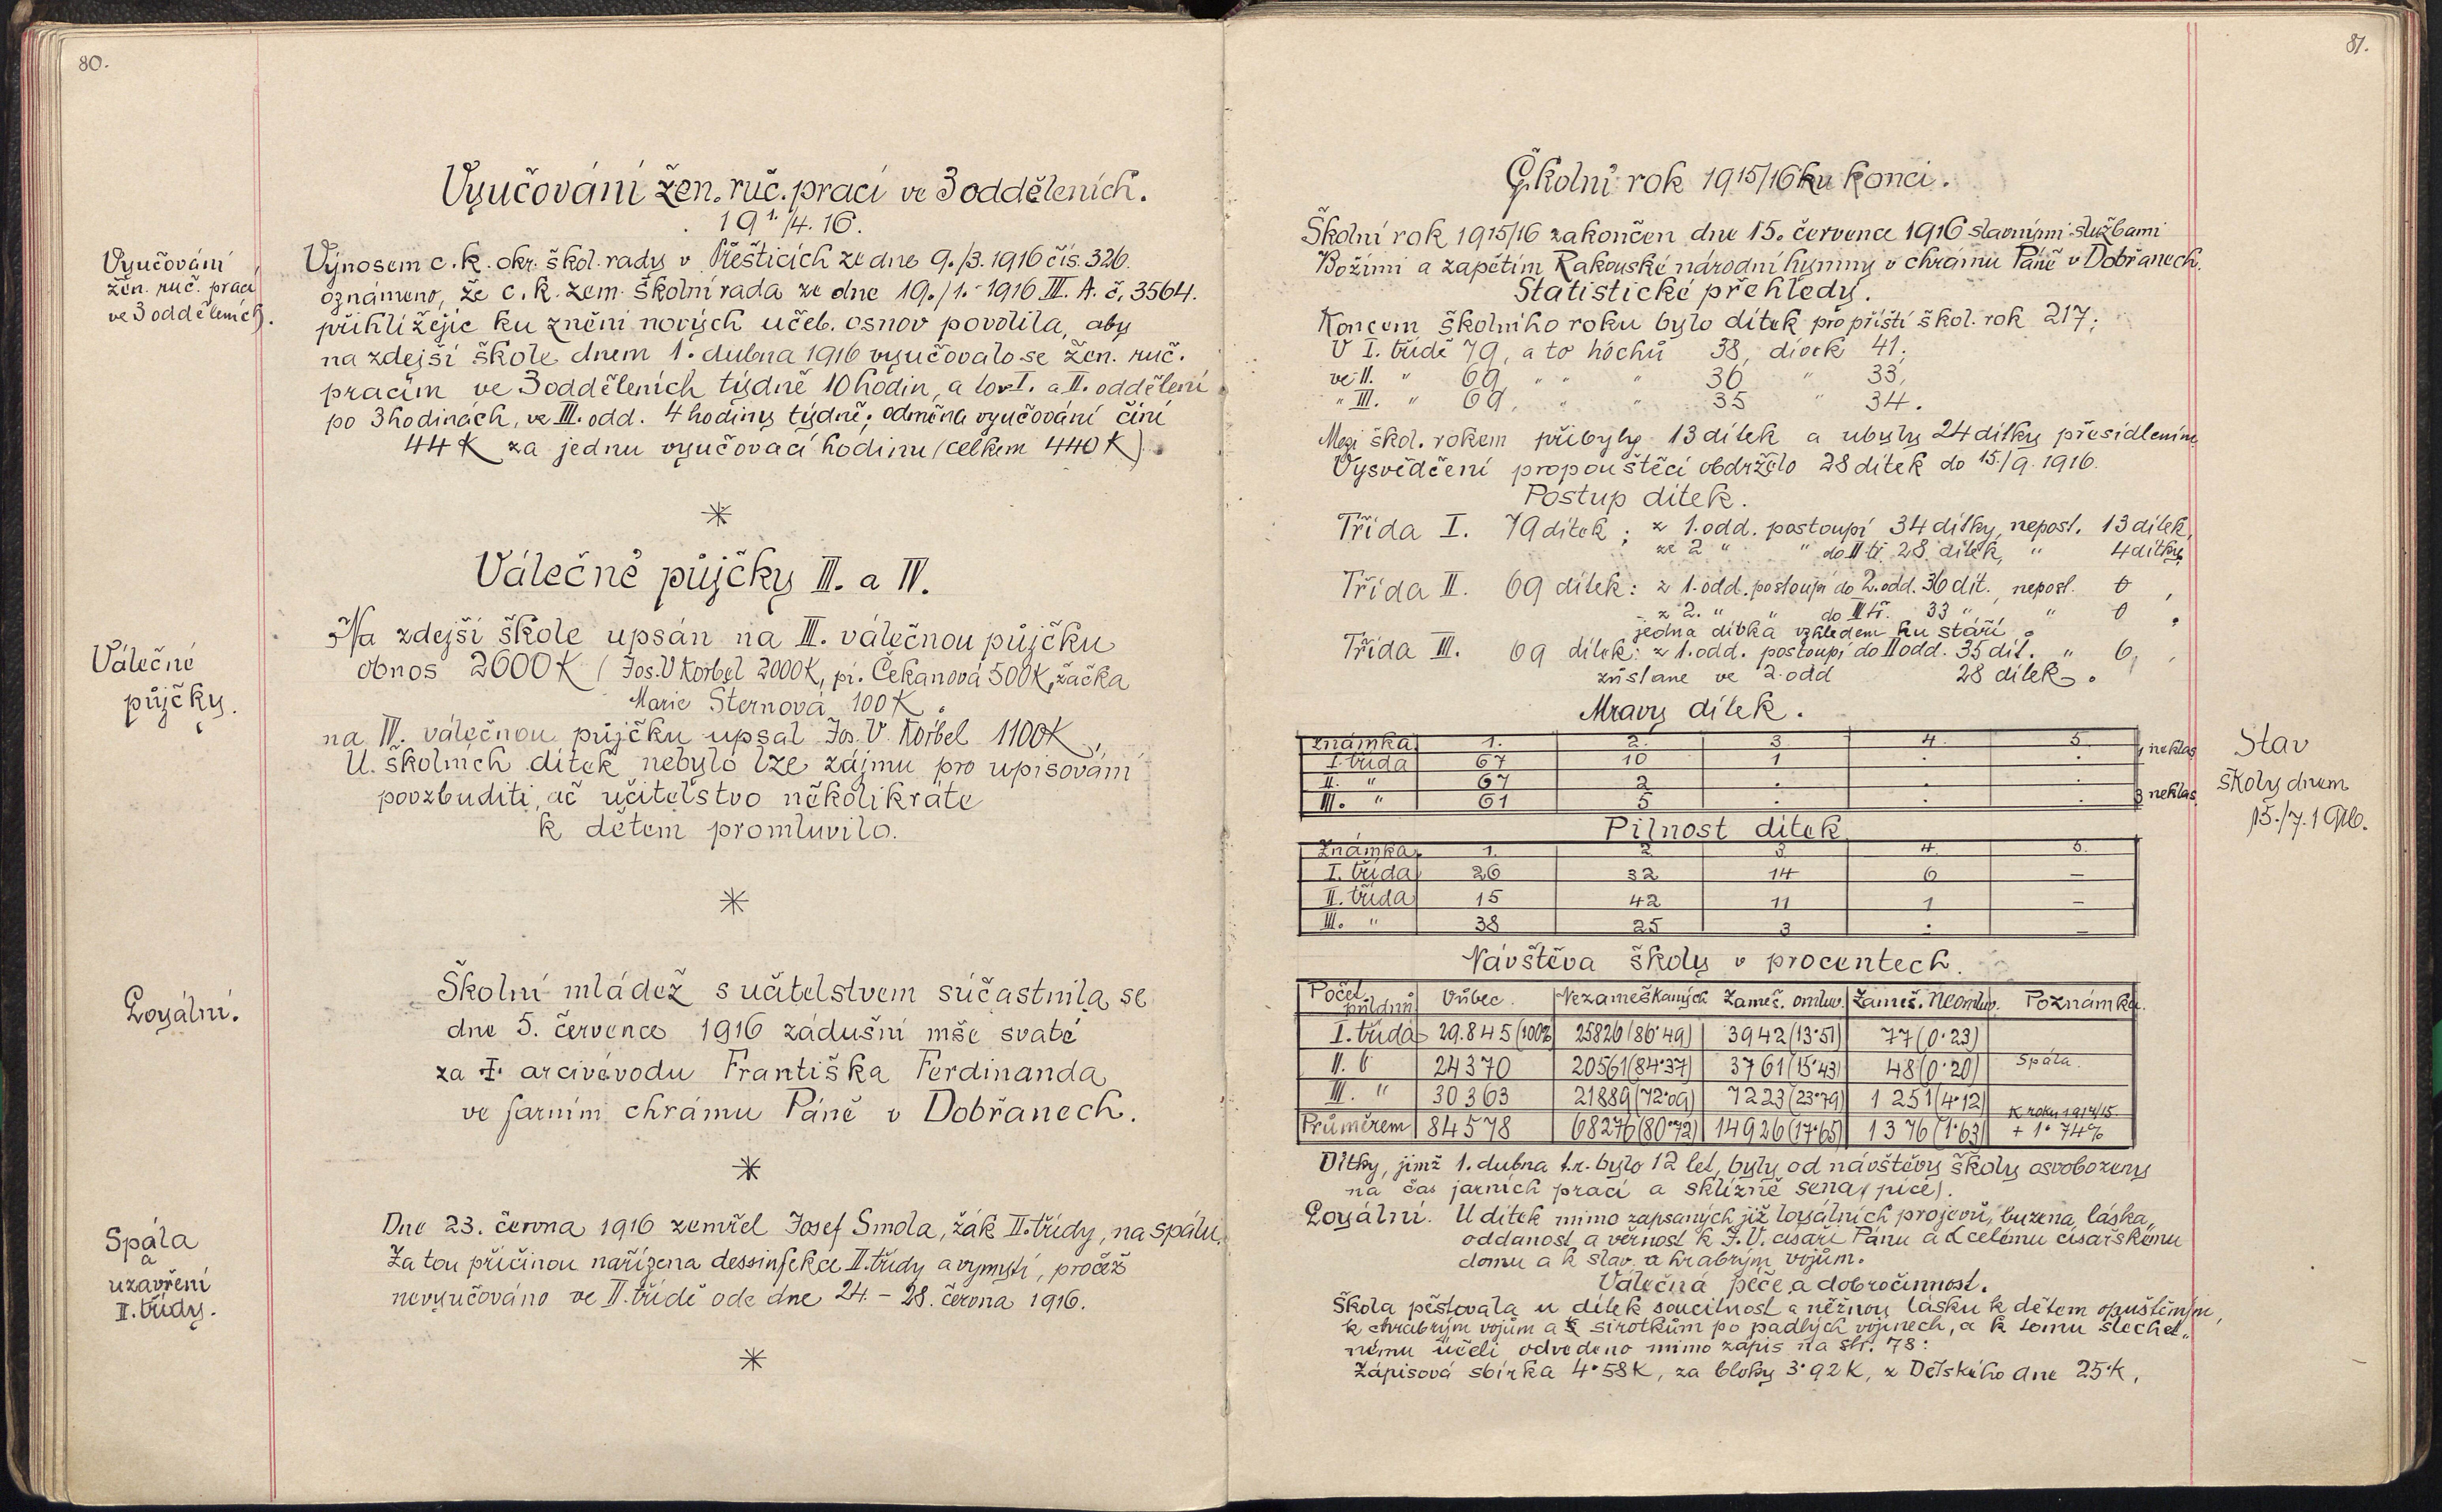 80.
Vyučování žen. ruč. prací ve 3 odděleních.
19 1./4. 16.
Vyučování
žen. ruč. prací
ve 3 odděleních.
Výnosem c. k. okr. škol. rady v Přešticích ze dne 9./3. 1916 čís. 326.
oznámeno, že c. k. zem. školní rada ze dne 19./1. 1916 III. A. č. 3564.
přihlížejíc ku znění nových učeb. osnov povolila, aby
na zdejší škole dnem 1. dubna 1916 vyučovalo se žen. ruč.
pracím ve 3 odděleních týdně 10 hodin, a to v I. a II. oddělení
po 3 hodinách, ve III. odd. 4 hodiny týdně; odměna vyučování činí
44 K za jednu vyučovací hodinu (celkem 440 K).
Válečné půjčky III. a IV.
Válečné
půjčky.
Na zdejší škole upsán na III. válečnou půjčku
obnos 2600 K (Jos. V. Korbel 2000 K, pí. Čekanová 500 K, žačka
Marie Sternová 100 K.
na IV. válečnou půjčku upsal Jos. V. Korbel 1100 K,
U školních dítek nebylo lze zájmu pro upisování
povzbuditi, ač učitelstvo několikráte
k dětem promluvilo.
Loyální.
Školní mládež s učitelstvem súčastnila se
dne 5. července 1916 zádušní mše svaté
za † arcivévodu Františka Ferdinanda
ve farním chrámu Páně v Dobřanech.
Spála
a
uzavření
II. třídy.
Dne 23. června 1916 zemřel Josef Smola, žák II. třídy, na spálu.
Za tou příčinou nařízena dessinfekce II. třídy a vymytí, pročež
nevyučováno ve II. třídě ode dne 24. – 28. června 1916.
81.
Školní rok 1915/16 ku konci.
Školní rok 1915/16 zakončen dne 15. července 1916 slavnými službami
Božími a zapětím Rakouské národní hymny v chrámu Páně v Dobřanech.
Statistické přehledy.
Koncem školního roku bylo dítek pro příští škol. rok 217;
V I. třídě 79, a to hochů 38, dívek 41;
ve II. " 69, " " " 36 " 33,
" III. " 69, " " 35 " 34.
Mezi škol. rokem přibyly 13 dítek a ubyly 24 dítky přesídlením
Vysvědčení propouštěcí obdrželo 28 dítek do 15./9. 1916.
Postup dítek.
Třída I. 79 dítek; z 1. odd. postoupí 34 dítky, nepost. 13 dítek,
ze 2 " " do II tř. 28 dítek, " 4 dítky.
Třída II. 69 dítek: z 1. odd. postoupí do 2. odd. 36 dít., nepost. 0,
z 2. " " do III tř. 33 " " 0.
jedna dívka vzhledem ku stáří.
Třída III. 69 dítek: z 1. odd. postoupí do II odd. 35 dít. " 6,
zůstane ve 2. odd 28 dítek.
Mravy dítek.
známka 1. 2. 3. 4. 5.
I. třída 67 10 1 . . 1 neklas
II. " 67 2 . . .
III. " 61 5 . . . 3 neklas
Stav
školy dnem
15./7. 1916.
Pilnost dítek
Známka 1. 2 3 4. 5.
I. třída 26 32 14 6 –
II. třída 15 42 11 1 –
III. " 38 25 3 . –
Návštěva školy v procentech.
Počet půldnů Vůbec. Nezameškaných Zameš. omluv. Zameš. neomluv. Poznámka.
I. třída 29.845 (100%) 25826 (86·49) 3942 (13·51) 77 (0·23)
II. " 24370 20561 (84·37) 3761 (15·43) 48 (0·20) Spála.
III. " 30363 21889 (72·09) 7223 (23·79) 1251 (4·12)
K roku 1914/15.
Průměrem 84578 68276 (80·72) 14926 (17·65) 1376 (1·63) + 1·74%
Dítky, jimž 1. dubna t.r. bylo 12 let, byly od návštěvy školy osvobozeny
na čas jarních prací a sklizně sena (píce).
Loyální. U dítek mimo zapsaných již loyálních projevů, buzena láska,
oddanost a věrnost k J. V. císaři Pánu a k celému císařskému
domu a k slav. a hrabrým vojům.
Válečná péče a dobročinnost.
Škola pěstovala u dítek soucitnost a něžnou lásku k dětem opuštěným,
k chrabrým vojům a k sirotkům po padlých vojínech, a k tomu šlechet„
nému účeli odvedeno mimo zápis na str. 78:
Zápisová sbírka 4·58 K, za bloky 3·92 K, z Dětského dne 25·K,